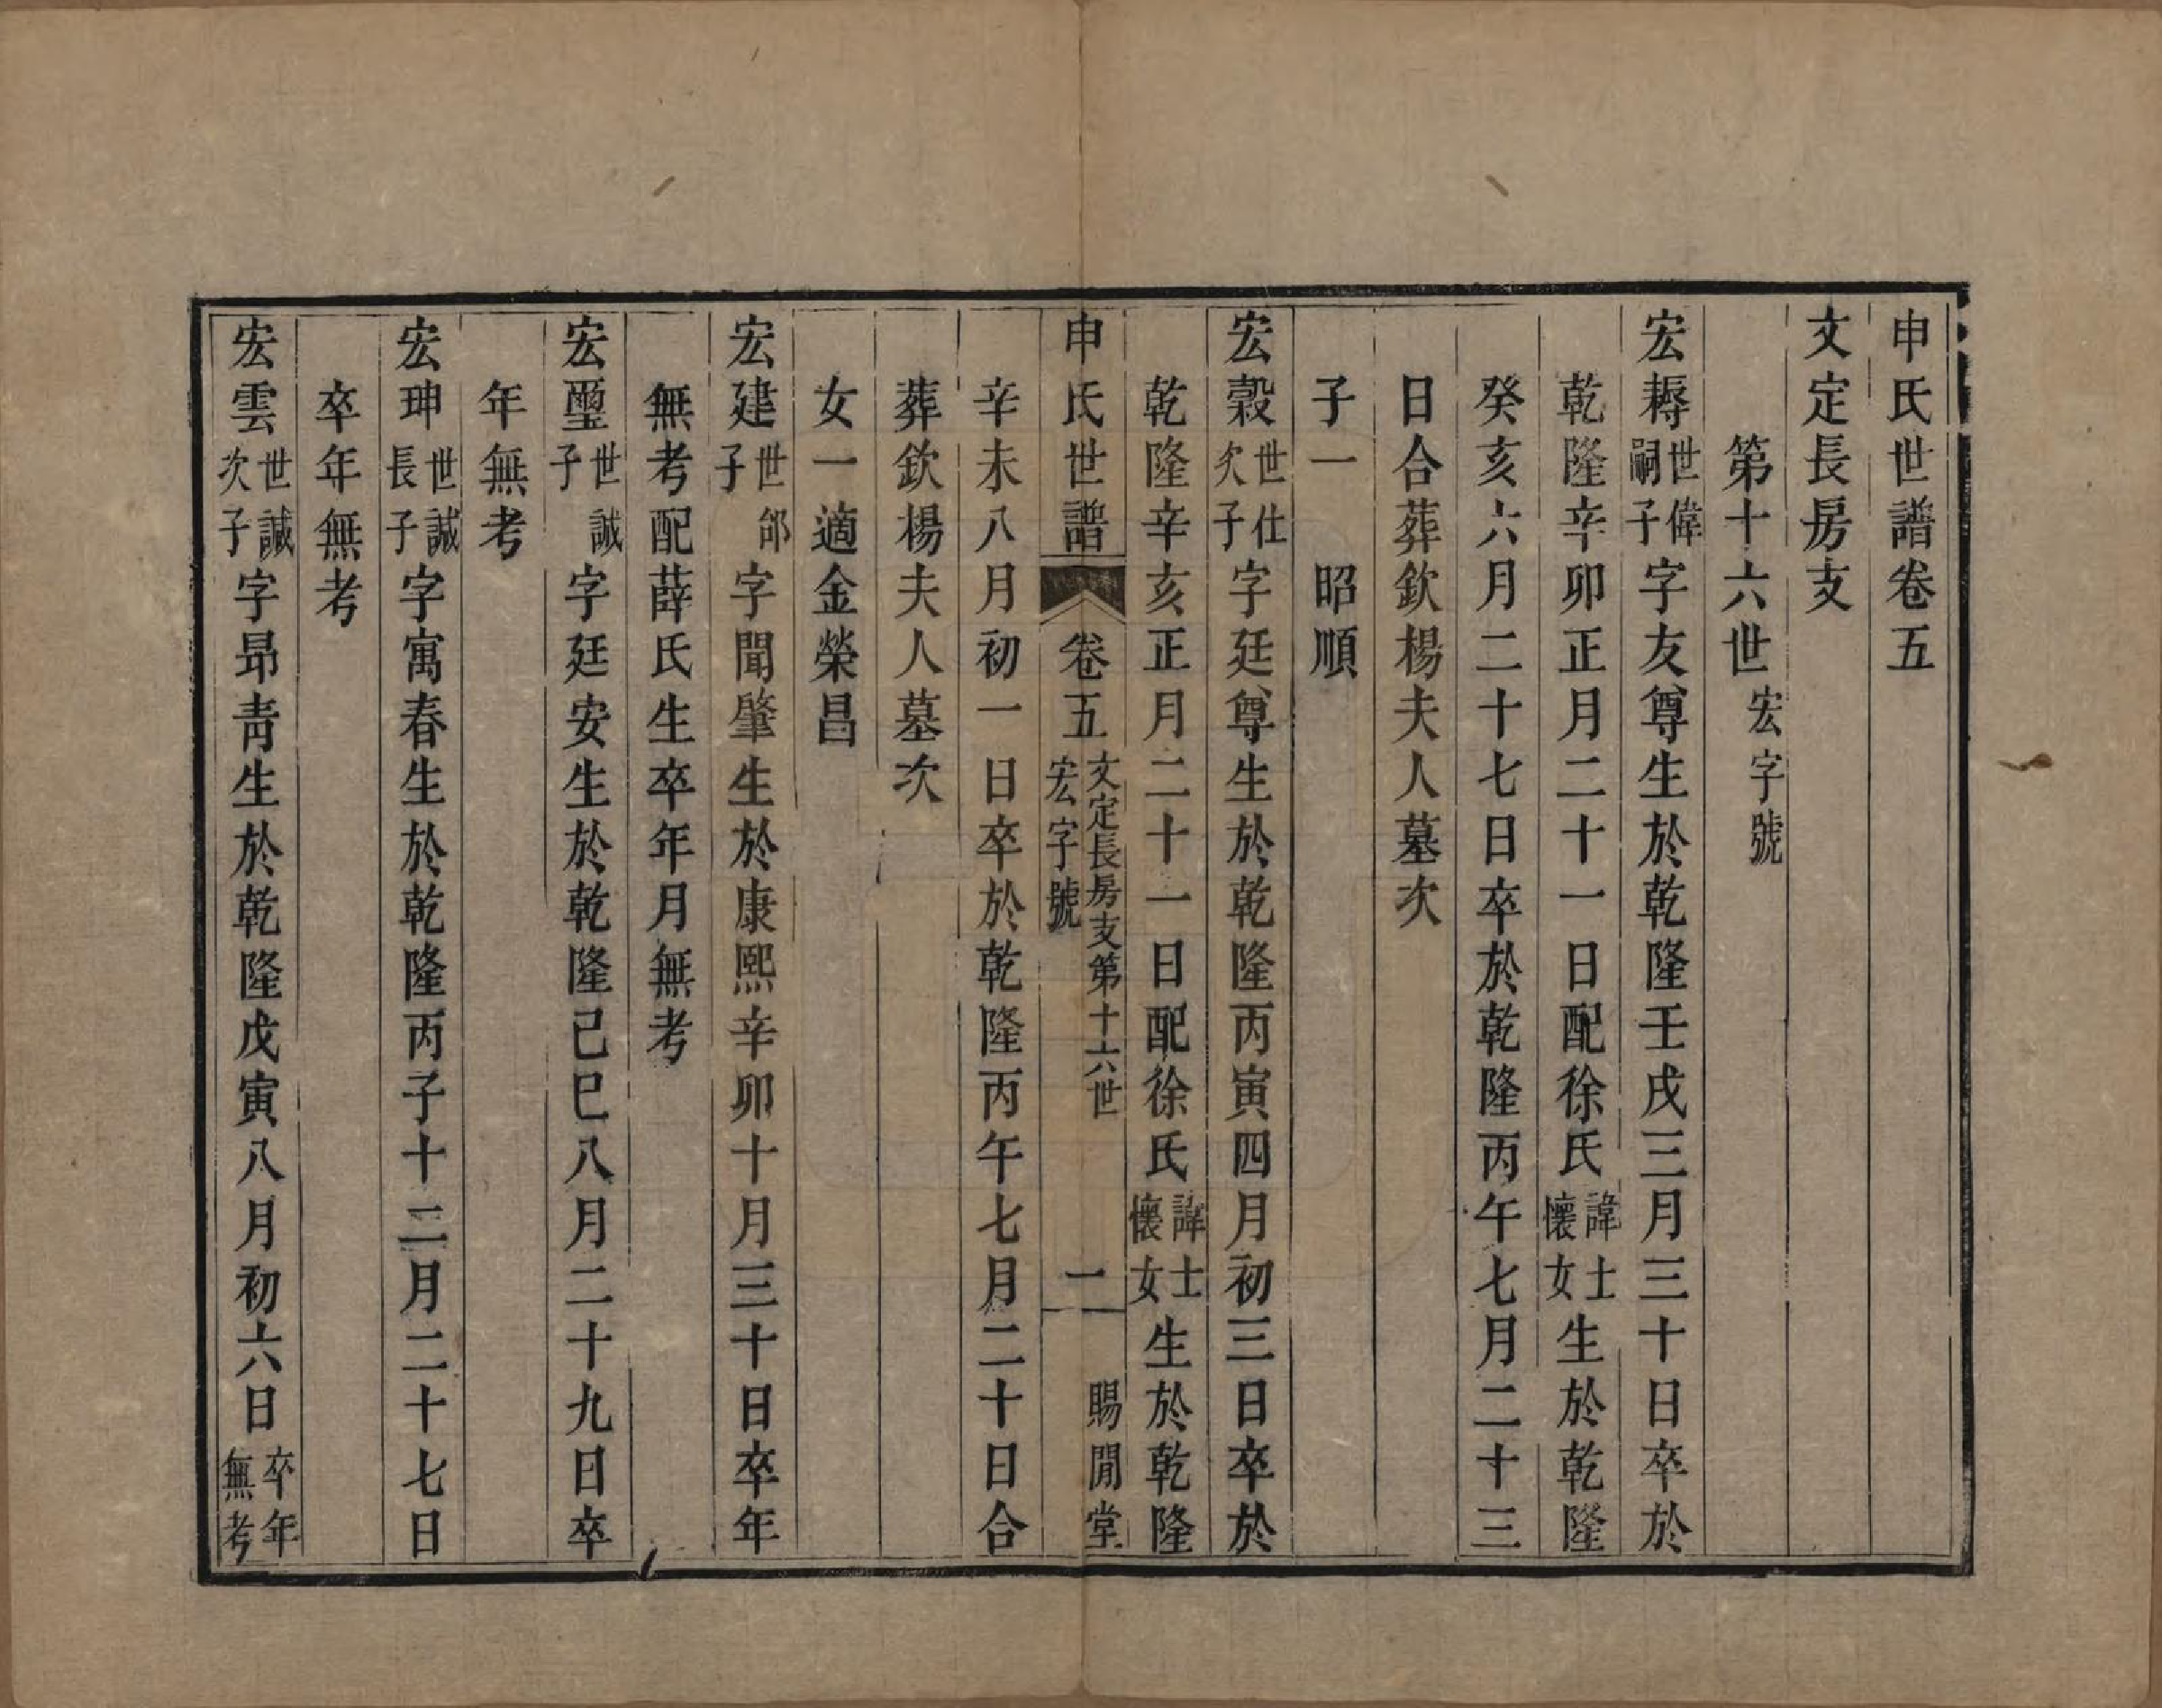 申氏世譜卷五
文定長房支
第十六世宏字號
宏耨世偉嗣子字友尊生於乾隆壬戌三月三十日卒於
乾隆辛卯正月二十一日配徐氏諱士懷女生於乾隆
癸亥六月二十七日卒於乾隆丙午七月二十三
日合葬欽楊夫人墓次
子一 昭順
宏穀世仕次子字廷尊生於乾隆丙寅四月初三日卒於
乾隆辛亥正月二十一日配徐氏諱士懷女生於乾隆
申氏世譜 卷五 文定長房支第十六世宏字號 一 賜閒堂
辛未八月初一日卒於乾隆丙午七月二十日合
葬欽楊夫人墓次
女一適金榮昌
宏建世郃子字聞肇生於康熙辛卯十月三十日卒年
無考配薛氏生卒年月無考
宏璽世諴子字廷安生於乾隆己巳八月二十九日卒
年無考
宏珅世諴長子字寓春生於乾隆丙子十二月二十七日
卒年無考
宏雲世諴次子字昻靑生於乾隆戊寅八月初六日卒年無考